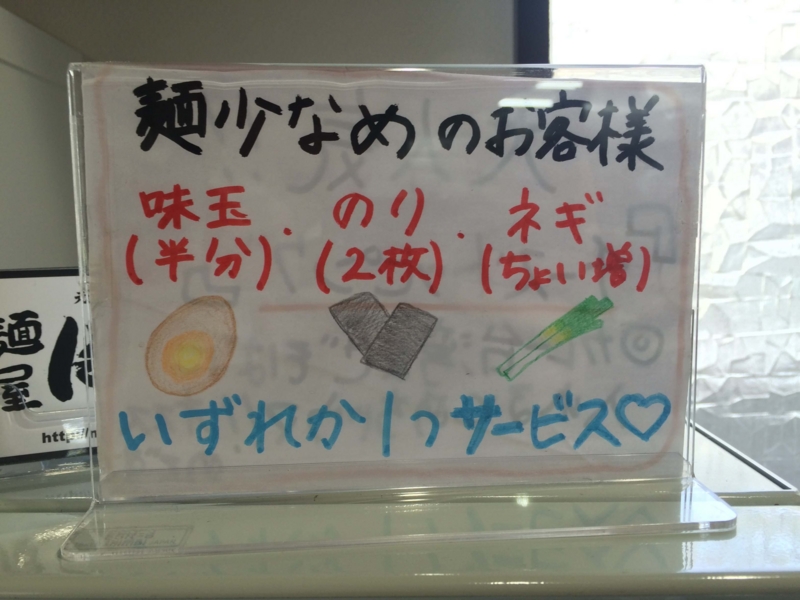 麺少なめのお客様
味玉・のり・ネギ
(半分) (2枚) (ちょい増)
いずれか1つサービス♡
麺屋
http://